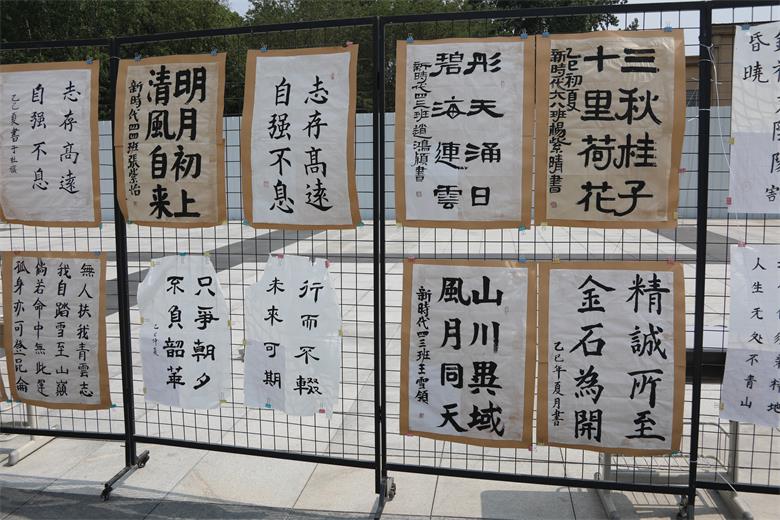 志存高遠
自强不息
乙巳夏書于
明月初上
清風自来
新時代四四班張紫怡
志存高遠
自强不息
彤天涌日
碧海連雲
新時代四三班趙鴻穎書
三秋桂子
十里荷花
乙巳初夏
新時代六八班楊紫晴書
昏曉
無人扶我青雲志
我自踏雪至山巔
倘若命中無此運
孤身亦可登昆侖
只爭朝夕
不負韶華
乙巳仲夏
行而不輟
未來可期
山川異域
風月同天
新時代四三班王雪領
精誠所至
金石為開
乙巳年夏月書
人生无处不青山